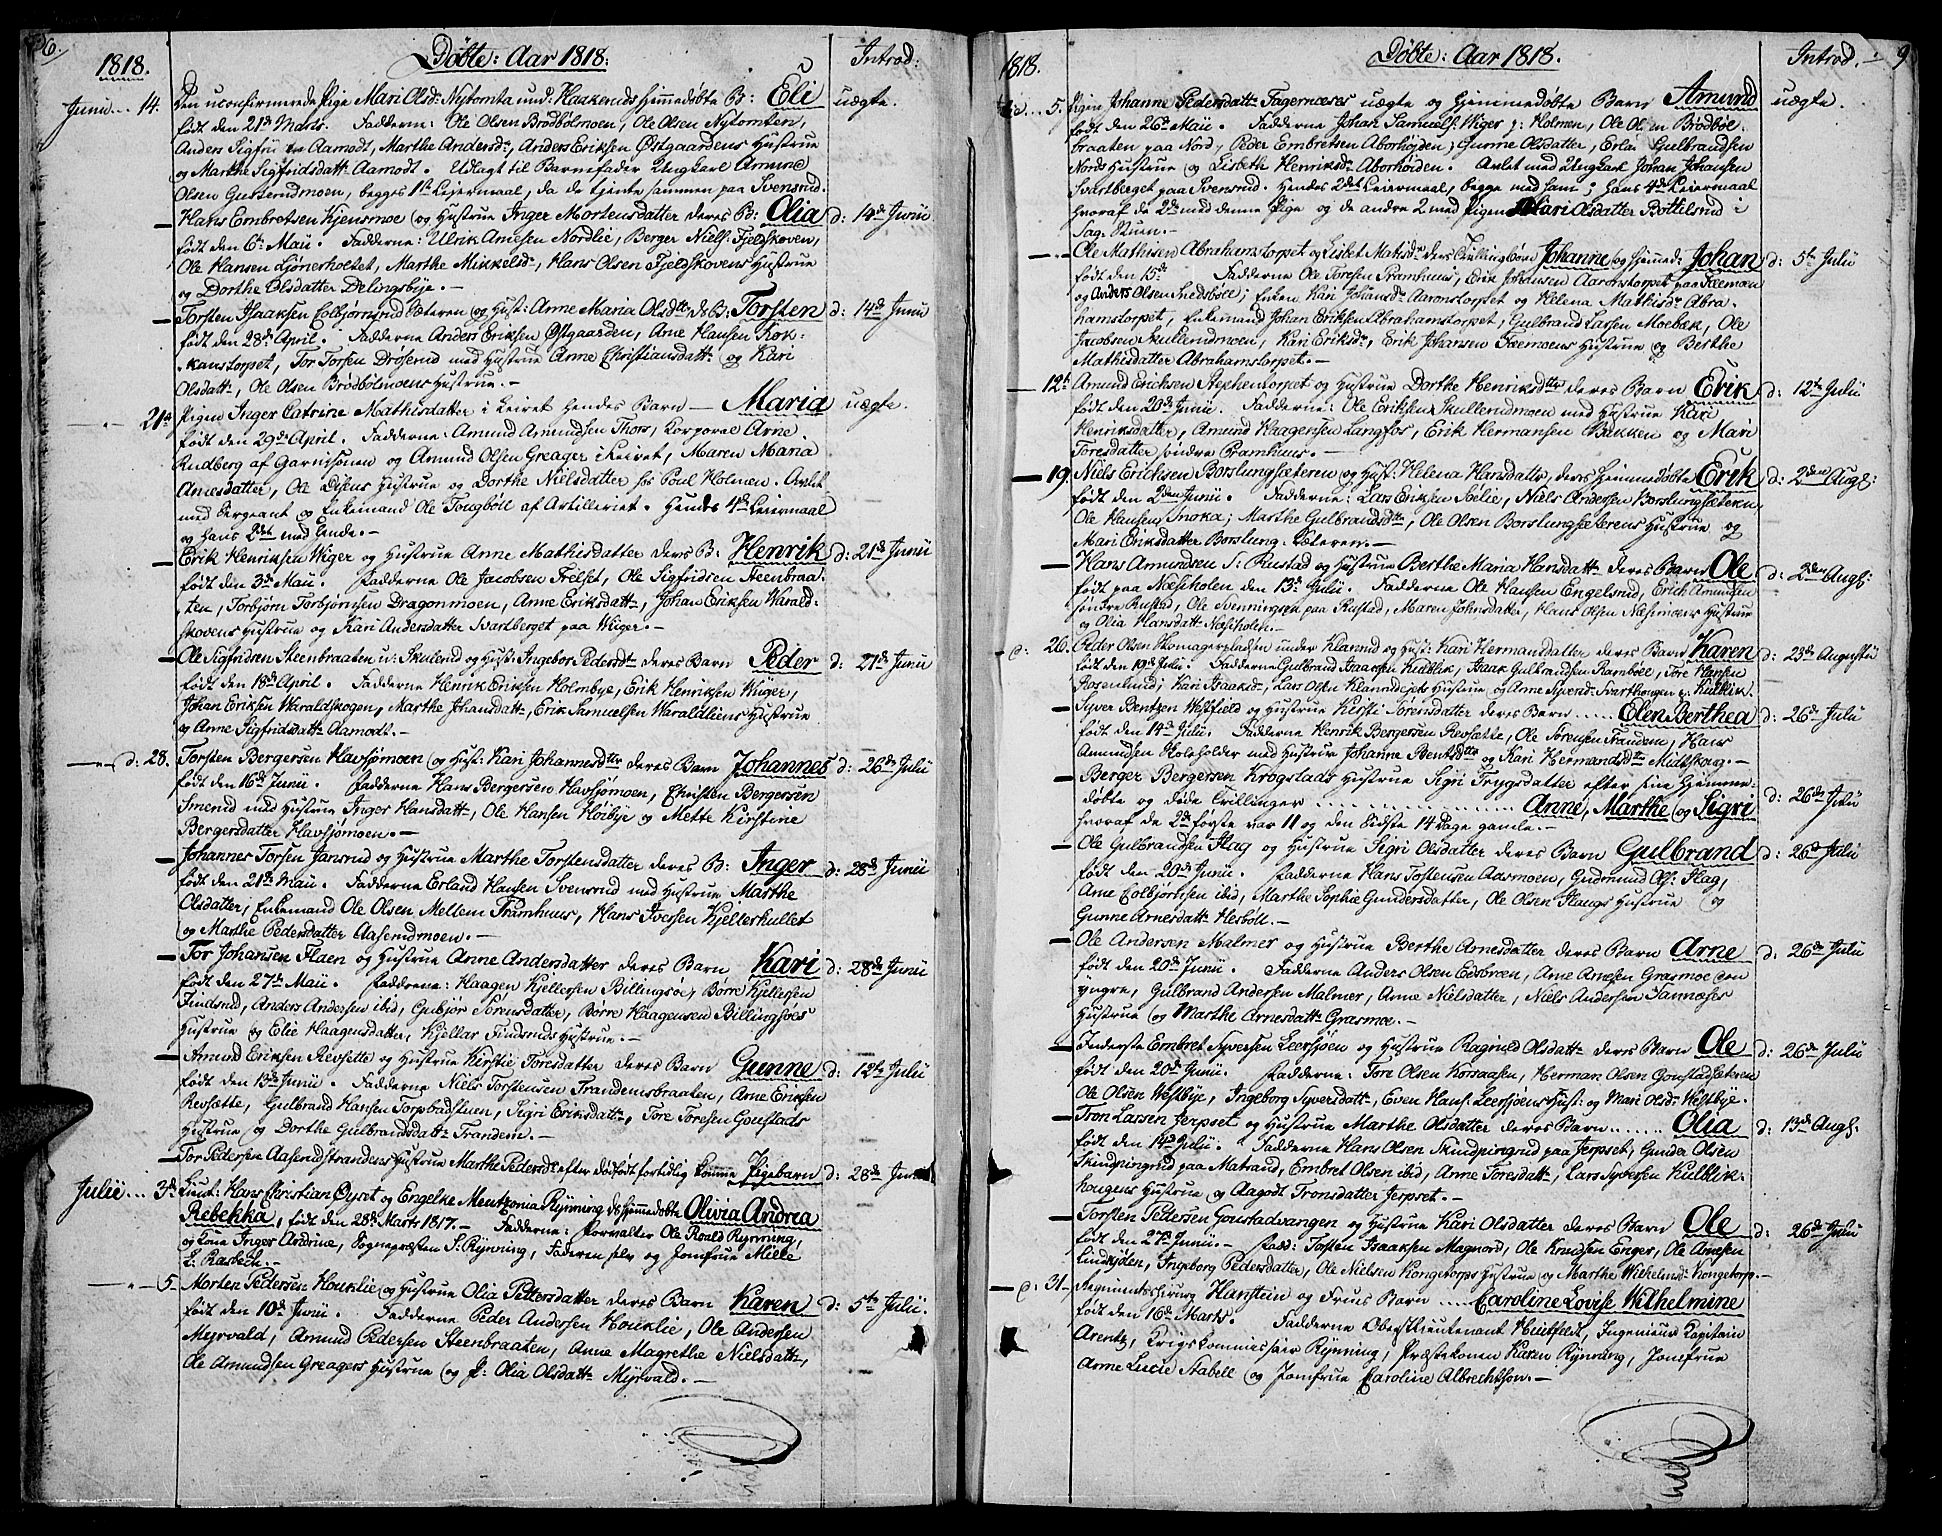 96.
1818. Döbte: Aar 1818. Introd:
Junii... 14. Den uconfirmerede Pige Mari Olsd: Nytomta und: Haakerud hiemmedöbte B: Eli uægte.
födt den 21de Marts. Fadderne: Ole Olsen Brödbölmoen, Ole Olsen Nytomten,
Anders Sigfrii Aamodt, Marthe Andersd:, Anders Eriksen Østgaardens Hustrue
og Marthe Sigfridsdatt: Aamodt. Udlagt til Barnefader Ungkarl Amund
Olsen Gusterudmoen, begges 1ste Leiermaal, da de tjente sammen paa Svensrud.
Hans Embretsen Kjensmoe og Hustrue Inger Mortensdatter deres B: Olia d: 14de Junii
födt den 6te Maii. Fadderne: Ulrik Arnesen Nordlie, Berger Niels: Fjeldskoven,
Ole Hansen Ljönerholtet, Marthe Mikkelsd:, Hans Olsen Fjeldskovens Hustrue
og Dorthe Olsdatter Delingsbye.-
Torsten Isaaksen Colbjörnsrud Sæteren og Hust: Anne Maria Olsdtr ds B: Torsten d: 14de Junii
födt den 28de April. Fadderne Anders Eriksen Østgaarden, Arne Hansen Kok-
kanstorpet, Tor Torsen Dröserud med Hustrue Anne Christiansdatt: og Kari
Olsdatt:, Ole Olsen Brödbölmoens Hustrue.-
21de Pigen Inger Catrine Mathisdatter i Leiret hendes Barn - Maria uægte.
födt den 29de April. Fadderne: Amund Amundsen Thors, Corporal Arne
Rudberg af Garnisonen og Amund Olsen Greager i Leiret, Maren Maria
Arnesdatter, Ole Disens Hustrue og Dorthe Nielsdatter hos Poul Holmen. Avlet
med Sergeant og Enkemand Ole Tougböll af Artilleriet. Hendes 1ste Leiermaal
og hans 2det med Hende.-
Erik Henriksen Wiger og Hustrue Anne Mathisdatter deres B: Henrik d: 21de Junii
födt den 3die Maii. Fadderne Ole Jacobsen Frelset, Ole Sigfridsen Steenbraa-
ten, Torbjörn Torbjörnsen Dragonmoen, Anne Eriksdatt:, Johan Eriksen Warald-
skovens Hustrue og Kari Andersdatter Svartberget paa Wiger.-
Ole Sigfridsen Steenbraaten u: Skulerud og Hust: Ingebor Pedersdtr deres Barn Peder d: 21de Junii
födt den 18de April. Fadderne Henrik Eriksen Holmbye, Erik Henriksen Wiger,
Johan Eriksen Waraldskogen, Marthe Johansdatt:, Erik Samuelsen Waraldliens Hustrue
og Anne Sigfridsdatt: Aamodt.-
d: 28. Torsten Bergersen Havsjömoen og Hust: Kari Johannesdtter deres Barn Johannes d: 26de Julii
födt den 16de Junii. Fadderne Hans Bergersen Havsjömoen, Christen Bergersen
Smerud med Hustrue Inger Hansdatt:, Ole Hansen Höibye og Mette Kirstine
Bergersdatter Havsjömoen.-
Johannes Torsen Jansrud og Hustrue Marthe Torstensdatter deres B: Inger d: 28de Junii
födt den 21de Maii. Fadderne Erland Hansen Svensrud med Hustrue Marthe
Olsdatter, Enkemand Ole Olsen Mellem Framhuus, Hans Iversen Kjellerhullet
og Marthe Pedersdatter Aaserudmoen.-
Tor Johansen Flaen og Hustrue Anne Andersdatter deres Barn Kari d: 28de Junii
födt den 27de Maii. Fadderne: Haagen Kjellersen Billingsöe, Börre Kjellersen
Findsrud, Anders Andersen ibid, Gubjör Sörensdatter, Börre Haagensen Billingsöes
Hustrue og Elie Haagensdatter, Kjellar Findsruds Hustrue.-
Amund Eriksen Revsette og Hustrue Kirstie Toresdatter deres Barn Gunne d: 12te Julii
födt den 13de Junii. Fadderne Niels Torstensen Trandemsbraaten, Arne Eriksen
Revsætte, Gulbrand Hansen Torpbadstuen, Sigri Eriksdatt:, Tore Toresen Goustads
Hustrue og Dorthe Gulbrandsdatt: Trandem.-
Tor Pedersen Aaserudstrandens Hustrue Marthe Pedersd: efter dödfödt fortidlig komne Pigebarn d: 28de Junii
Julii... 3de Lieut: Hans Christian Öyset og Engelke Mentzonia Rynning ds hjemmedöbte Olivia Andrea
Rebekka, födt den 28de Marts 1817.- Fadderne: Forvalter Ole Roald Rynning,
og Kone Inger Andrine, Sognepræsten S: Rynning, Faderen selv og Jomfrue Mille
E: Rasbech.-
5. Morten Pedersen Houklie og Hustrue Olia Pettersdatter deres Barn Karen d: 5te Julii.
födt den 10de Junii. Fadderne Peder Andersen Houklie, Ole Andersen
Myrvald, Amund Pedersen Steenbraaten, Anne Magrethe Nielsdatt:,
Ole Amundsen Greagers Hustrue og P: Olia Olsdatt: Myrvald.-
1818. Döbte: Aar 1818. Introd. 9
5. Pigen Johanne Pedersdatt: Fagernæses uægte og hjemmedöbte Barn Amund uægte.
födt den 26de Maii. Fadderne Johan Samuels: Wiger p: Holmen, Ole Olsen Brödböl-
braaten paa Nord, Peder Embretsen Aborhöjden; Gunne Olsdatter, Erlai Gulbrandsen
Nords Hustrue og Lisbeth Henriksd: Aborhöiden. Avlet med Ungkarl Johan Johansen
Svartberget paa Svensrud. Hendes 2det Leiermaal, begge med ham; hans 4de Leiermaal
hvoraf de 2de med denne Pige og de andre 2 med Pigen Mari Olsdatter Böttilsrud i
Sag-Stuen.-
Ole Mathisen Abrahamstorpet og Lisbet Matisdr deres Tvillingbörn Johanne og hjemmed: Johan d: 5te Julii
födt den 15de Fadderne Ole Toresen Framhuus, Erik Johansen Aaronstorpet paa Sæmoen
og Anders Olsen Snedsböle; Enken Kari Johansdr Aaronstorpet og Helena Mathisdr Abra-
hamstorpet, Enkemand Johan Eriksen Abrahamstorpet, Gulbrand Larsen Moebek, Ole
Jacobsen Skullerudmoen, Kari Eriksdr, Erik Johansen Sæmoens Hustrue og Berthe
Mathisdatter Abrahamstorpet.-
12te Amund Ericksen Stephentorpet og Hustrue Dorthe Henriksdtter deres Barn Erik d: 12te Julii
födt den 20de Junii. Fadderne: Ole Eriksen Skullerudmoen med Hustrue Kari
Henriksdatter, Amund Haagensen Langfos, Erik Hermansen Bakken og Mari
Toresdatter söndre Framhuus.-
19 Niels Ericksen Borslungsæteren og Hust: Helena Hansdattr, deres hjemmedöbte Erik d: 2den Augs:
födt den 2den Junii. Fadderne: Lars Eriksen Sölie, Niels Andersen Borslungsæteren,
Ole Hansen Snoka; Marthe Gulbrandsdtr, Ole Olsen Borslungsæterens Hustrue og
Mari Eriksdatter Borslung-Sæteren.-
Hans Amundsen S: Rustad og Hustrue Berthe Maria Hansdatt: deres Barn Ole d: 2den Augs:
födt paa Næsiholen den 13de Julii. Fadderne Ole Hansen Engelsrud, Erich Amundsen
söndre Rustad, Ole Svenningsen paa Rustad, Maren Johnsdatter, Hans Olsen Næsimoens Hustrue
og Olia Hansdatt: Næsiholen.-
d: 26. Peder Olsen Skomagerpladsen under Klanrud og Hust: Kari Hermandsdatter deres Barn Karen d: 23de Augustii
födt den 19de Julii. Fadderne Gulbrand Isaaksen Kulblik, Isaak Gulbrandsen Ramböl, Tore Hansen
Rosenlund; Kari Isaaksd:, Lars Olsen Klanrudejets Hustrue og Anne Syversd: Svarthougen p: Kulblik.
Syver Bentzen Westfield og Hustrue Kirsti Soresdatter deres Barn ..... Elen Berthea d: 26de Julii
födt den 14de Julii. Fadderne Henrik Bergersen Revsætte, Ole Sörensen Trandem, Hans
Amundsen Skoleholder med Hustrue Johanne Bentsdtr og Kari Hermandsdtr Midtskoug.-
Berger Bergersen Krogstads Hustrue Sigri Trygsdatter efter sine hjemme-
döbte og döde Trillinger ............ Anne, Marthe og Sigri d: 26de Julii
hvoraf de 2de förste var 11 og den Sidste 14 Dage gamle.-
Ole Gulbrandsen Flag og Hustrue Sigri Olsdatter deres Barn Gulbrand d: 26de Julii
födt den 20de Junii. Fadderne Hans Torstensen Aasmoen, Gudmund Ols: Flag,
Arne Colbjörnsen ibid, Marthe Sophie Gundersdatter, Ole Olsen Flaugs Hustrue og
Gunne Arnesdatt: Hesböll.-
Ole Andersen Malmer og Hustrue Berthe Arnesdatter deres Barn Arne d: 26de Julii
födt den 20de Junii. Fadderne Anders Olsen Eidsbræn, Arne Arnesen Grasmoe den
yngre, Gulbrand Andersen Malmer, Anne Nielsdatter, Niels Andersen Tannæses
Hustrue og Marthe Arnesdatt: Grasmoe.-
Inderste Embret Syversen Leersjöen og Hustrue Ragnild Olsdatt: deres Barn Ole d: 26de Julii
födt den 20de Junii. Fadderne: Tore Olsen Korsaasen, Herman Olsen Goustadsæteren
Ole Olsen Westbye, Ingeborg Syversdatt:, Even Hans: Leersjöens Hust: og Mari Olsd: Westbye.
Tron Larsen Jerpset og Hustrue Marthe Olsdatter deres Barn ...... Olia d: 13de Augs:
födt den 14de Julii. Fadderne Hans Olsen Skindpungrud paa Jerpset, Gunder Olsen
Skindpungrud paa Matrand, Embret Olsen ibid, Anne Toresdatt:, Lars Syversen Kulblik-
hougens Hustrue og Aagodt Tronsdatter Jerpset.-
Torsten Pettersen Goustadvangen og Hustrue Kari Olsdatter deres Barn Ole d: 26de Julii
födt den 27de Junii.- Fadd: Torsten Isaaksen Magnord, Ole Knudsen Enger, Ole Arnesen
Lundsjöen, Ingeborg Pedersdatter, Ole Nielsen Kongetorps Hustrue og Marthe Wilhelmsd: Kongetorp.-
d: 31. Regimentschirurg Hanstein og Frues Barn ..... Caroline Lovise Wilhelmine
födt den 16de Marts. Fadderne Oberstlieutenant Huitfeldt, Ingenieur Kapitain
Arentz, Krigskommissair Rynning, Præstekonen Karen Rynning, Jomfrue
Anne Lucie Stabell og Jomfrue Caroline Albrechtson.-